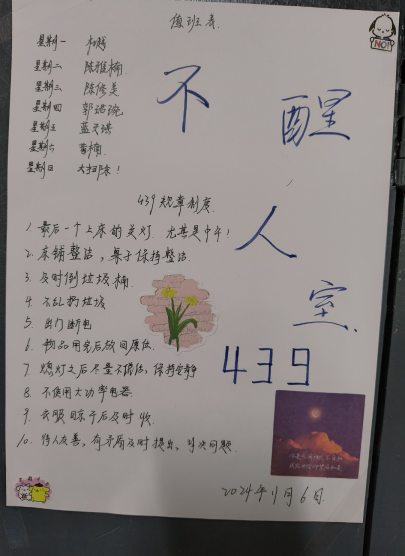 值班表.
星期一
星期二 陈雅楠.
星期三 陈修美
星期四
星期五
星期六 楠.
星期日 大扫除!
不醒人室.
439
NO!
439规章制度.
1. 最后一个上床的关灯. 尤其是中午!
2. 床铺整洁, 桌子保持整洁.
3. 及时倒垃圾桶.
4. 不乱扔垃圾
5. 出门断电
6. 物品用完后放回原位
7. 熄灯之后尽量不讲话, 保持安静
8. 不使用大功率电器.
9. 衣服晾干后及时收.
10. 待人友善, 有矛盾及时提出, 解决问题.
2024年11月6日.